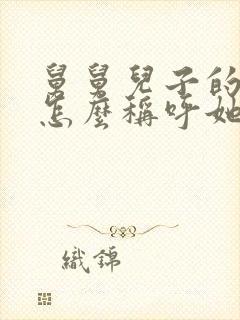 舅舅兒子的
怎麼稱呼她
織錦